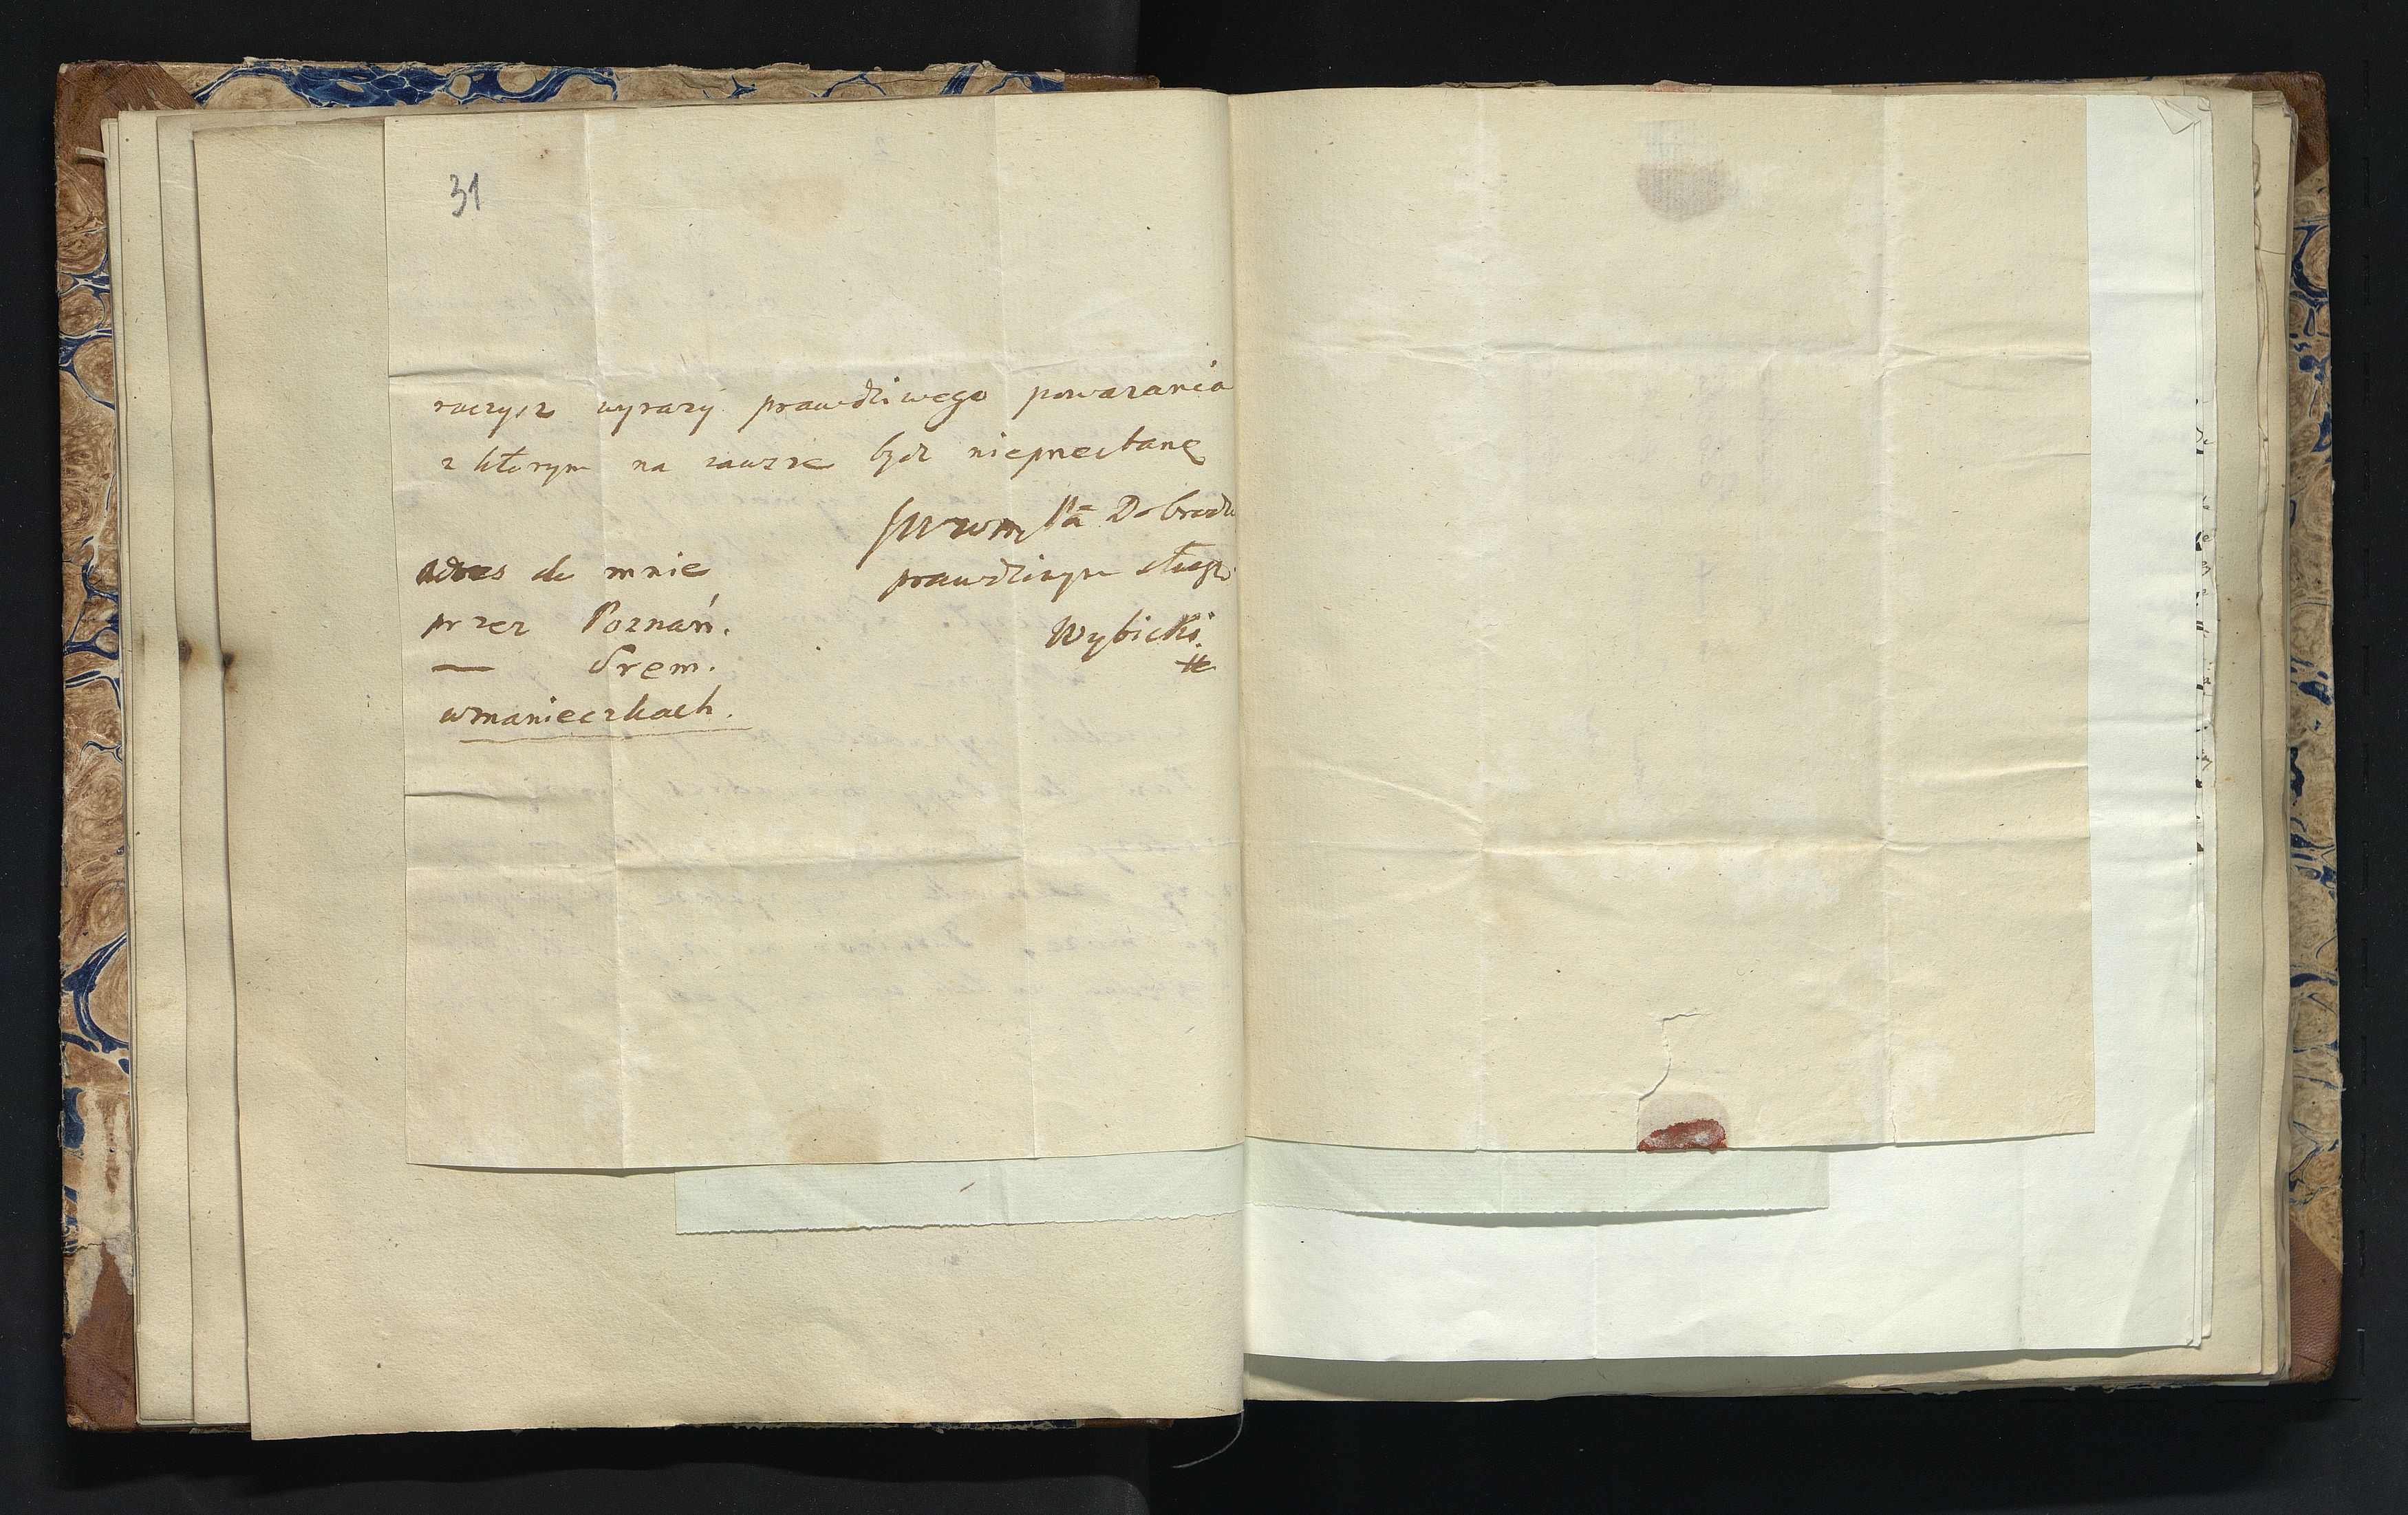 31
raczysz wyrazy prawdziwego poważania
z którym na zawsze bydź nieprzestanę
JWWM Pa Dobrodz
prawdziwym sługą
Wybicki
adres do mnie
przez Poznań.
— Srem.
w manieczkach.